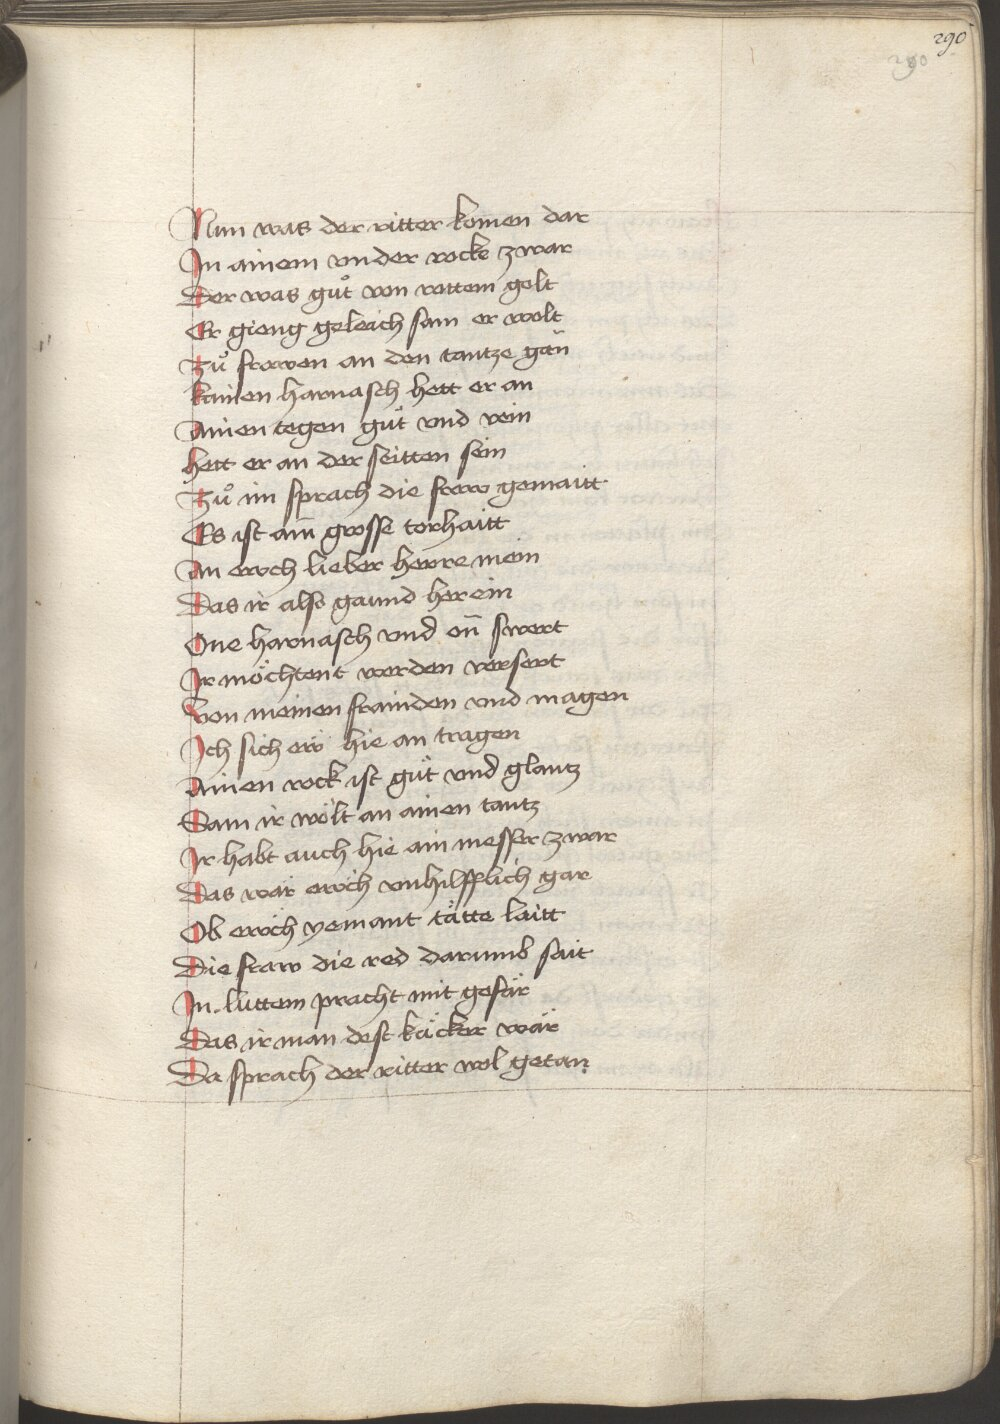 290
290
Nun was der ritter komen dar
In ainem vnder rocke zwar
Der was guͦt von rottem golt
Er gieng geleich sam er wolt
Zuͦ frowen an den tantze gan
kainen harnasch hett er an
Ainen tegen guͦt vnd vein
hett er an der seitten sein
Zuͦ im sprach die frow gemaitt
Es ist ain grosse torhaitt
An ewch lieber herre mein
Das ir also gaund herein
One harnasch vnd on̄ swert
Ir möchtent werden versert
Von meinen frainden vnd magen
Ich sich ew hie an tragen
Ainen rock ist guͦt vnd glantz
Sam ir wölt an ainen tantz
Ir habt auch hie ain messer zwar
Das wär ewch vnhilfflich gar
Ob ewch yemant tätte laitt
Die fraw die red darumb sait
In luttem pracht mit gefär
Das ir man dest käcker wär
Da sprach der ritter wol getan